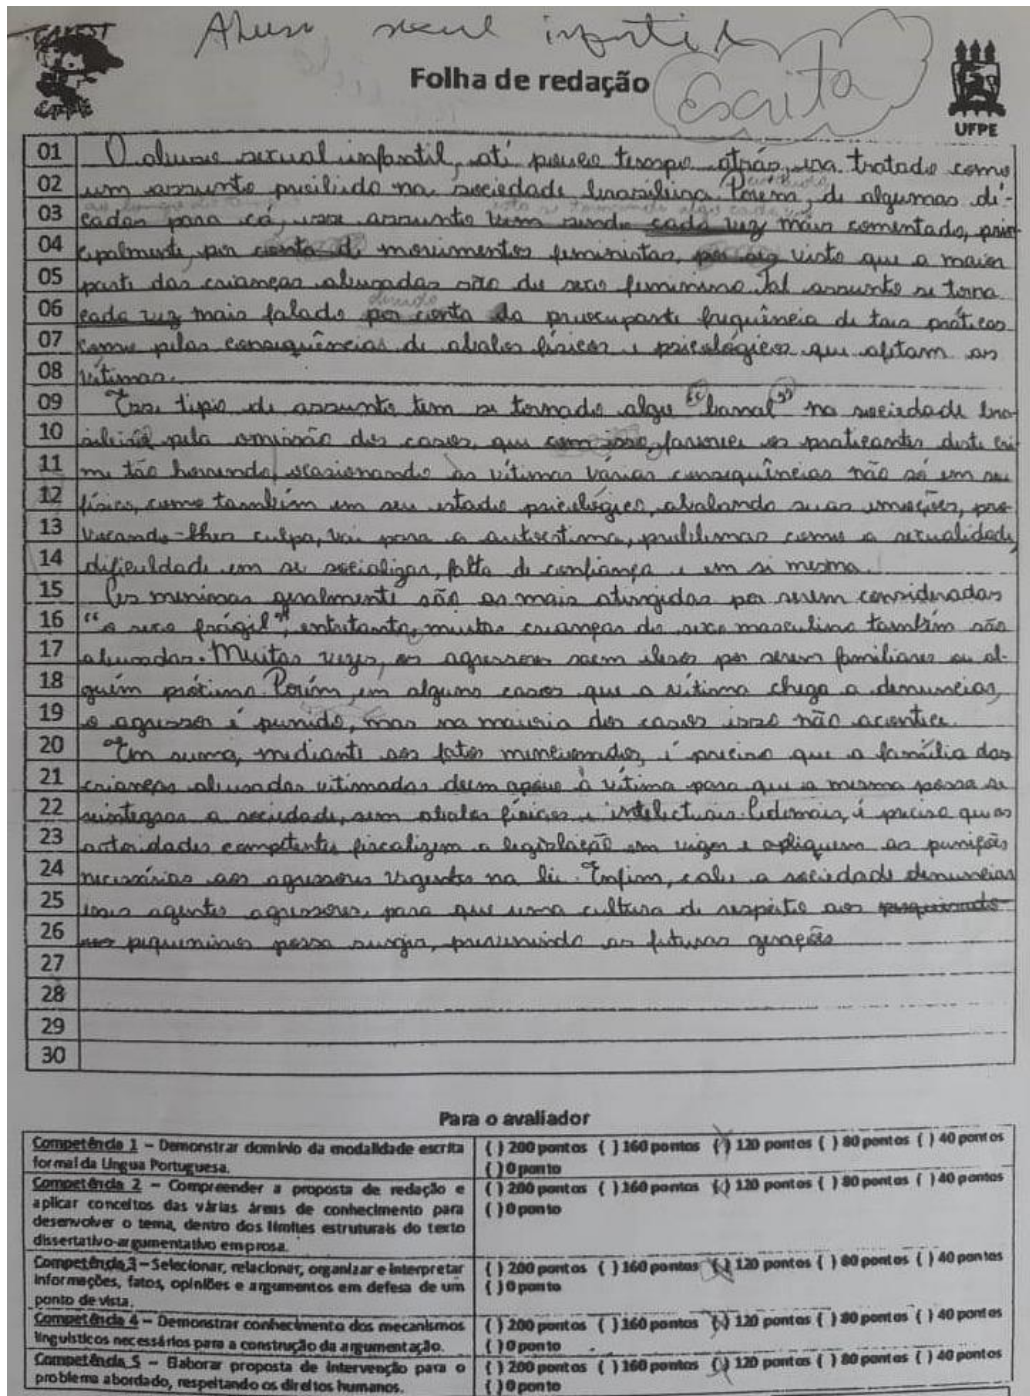 Abuso sexual infantil
Escrita
Folha de redação
UFPE
01 O abuso sexual infantil, até pouco tempo atrás, era tratado como
02 um assunto proibido na sociedade brasileira. Porém, de algumas dé-
03 cadas para cá, esse assunto vem sendo cada vez mais comentado, prin-
04 cipalmente, por conta de movimentos feministas, visto que a maior
05 parte das crianças abusadas são do sexo feminino. Tal assunto se torna
devido
06 cada vez mais falado por conta da preocupante frequência de tais práticas
07 como pelas consequências de abalos físicos e psicológicos que afetam as
08 vítimas.
09 Esse tipo de assunto tem se tornado algo "banal" na sociedade bra-
10 sileira pela omissão dos casos, que com isso, favorece os praticantes deste cri-
11 me tão horrendo, ocasionando às vítimas várias consequências não só em seu
12 físico, como também em seu estado psicológico, abalando suas emoções, pro-
13 vocando-lhes culpa, vai para a autoestima, problemas como a sexualidade,
14 dificuldade em se socializar, falta de confiança e em si mesma.
15 As meninas geralmente são as mais atingidas por serem consideradas
16 "o sexo frágil", entretanto, muitas crianças do sexo masculino também são
17 abusadas. Muitas vezes, os agressores saem ilesos por serem familiares ou al-
18 guém próximo. Porém, em alguns casos que a vítima chega a denunciar,
19 o agressor é punido, mas na maioria dos casos isso não acontece.
20 Em suma, mediante aos fatos mencionados, é preciso que a família das
21 crianças abusadas vitimadas deem apoio à vítima para que a mesma possa se
22 reintegrar a sociedade, sem abalos físicos e intelectuais. Ademais, é preciso que as
23 autoridades competentes fiscalizem a legislação em vigor e apliquem as punições
24 necessárias aos agressores vigentes na lei. Enfim, cabe a sociedade denunciar
25 esses agentes agressores, para que uma cultura de respeito aos
26 pequeninos possa surgir, prevenindo as futuras gerações
27
28
29
30
Para o avaliador
Competência 1 – Demonstrar domínio da modalidade escrita ( ) 200 pontos ( ) 160 pontos (X) 120 pontos ( ) 80 pontos ( ) 40 pontos
formal da Língua Portuguesa. ( ) 0 ponto
Competência 2 – Compreender a proposta de redação e ( ) 200 pontos ( ) 160 pontos (X) 120 pontos ( ) 80 pontos ( ) 40 pontos
aplicar conceitos das várias áreas de conhecimento para ( ) 0 ponto
desenvolver o tema, dentro dos limites estruturais do texto
dissertativo-argumentativo em prosa.
Competência 3 – Selecionar, relacionar, organizar e interpretar ( ) 200 pontos ( ) 160 pontos (X) 120 pontos ( ) 80 pontos ( ) 40 pontos
informações, fatos, opiniões e argumentos em defesa de um ( ) 0 ponto
ponto de vista.
Competência 4 – Demonstrar conhecimento dos mecanismos ( ) 200 pontos ( ) 160 pontos (X) 120 pontos ( ) 80 pontos ( ) 40 pontos
linguísticos necessários para a construção da argumentação. ( ) 0 ponto
Competência 5 – Elaborar proposta de intervenção para o ( ) 200 pontos ( ) 160 pontos (X) 120 pontos ( ) 80 pontos ( ) 40 pontos
problema abordado, respeitando os direitos humanos. ( ) 0 ponto